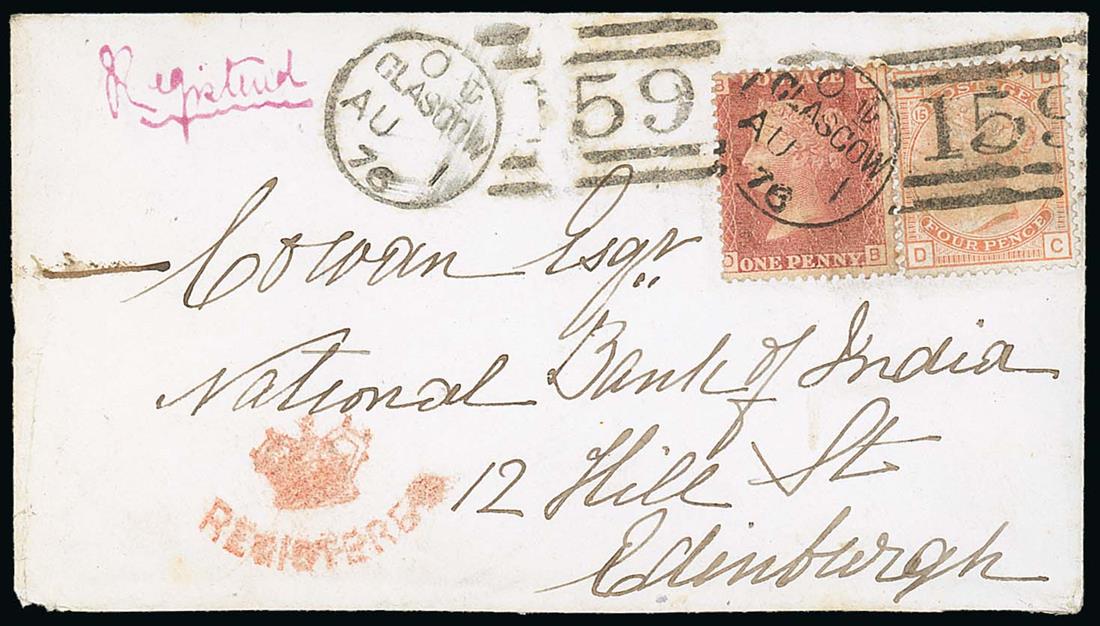 Registered
GLASGOW
AU 1
76
159
GLASGOW
AU 1
76
159
POSTAGE
ONE PENNY
B
B
POSTAGE
15
FOUR PENCE
D C
Cowan Esqr
National Bank of India
12 Hill St
Edinburgh
REGISTERED